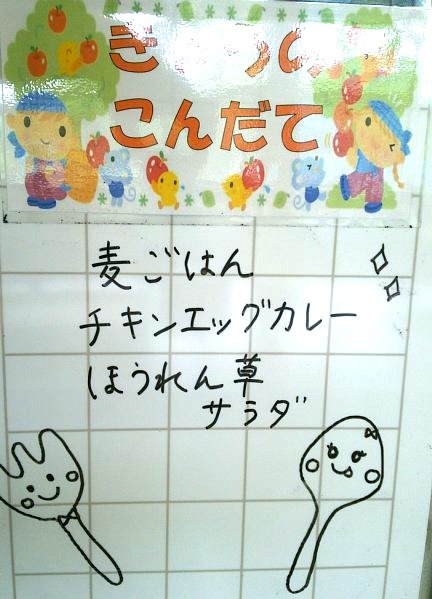 きょうの
こんだて
麦ごはん
チキンエッグカレー
ほうれん草
サラダ